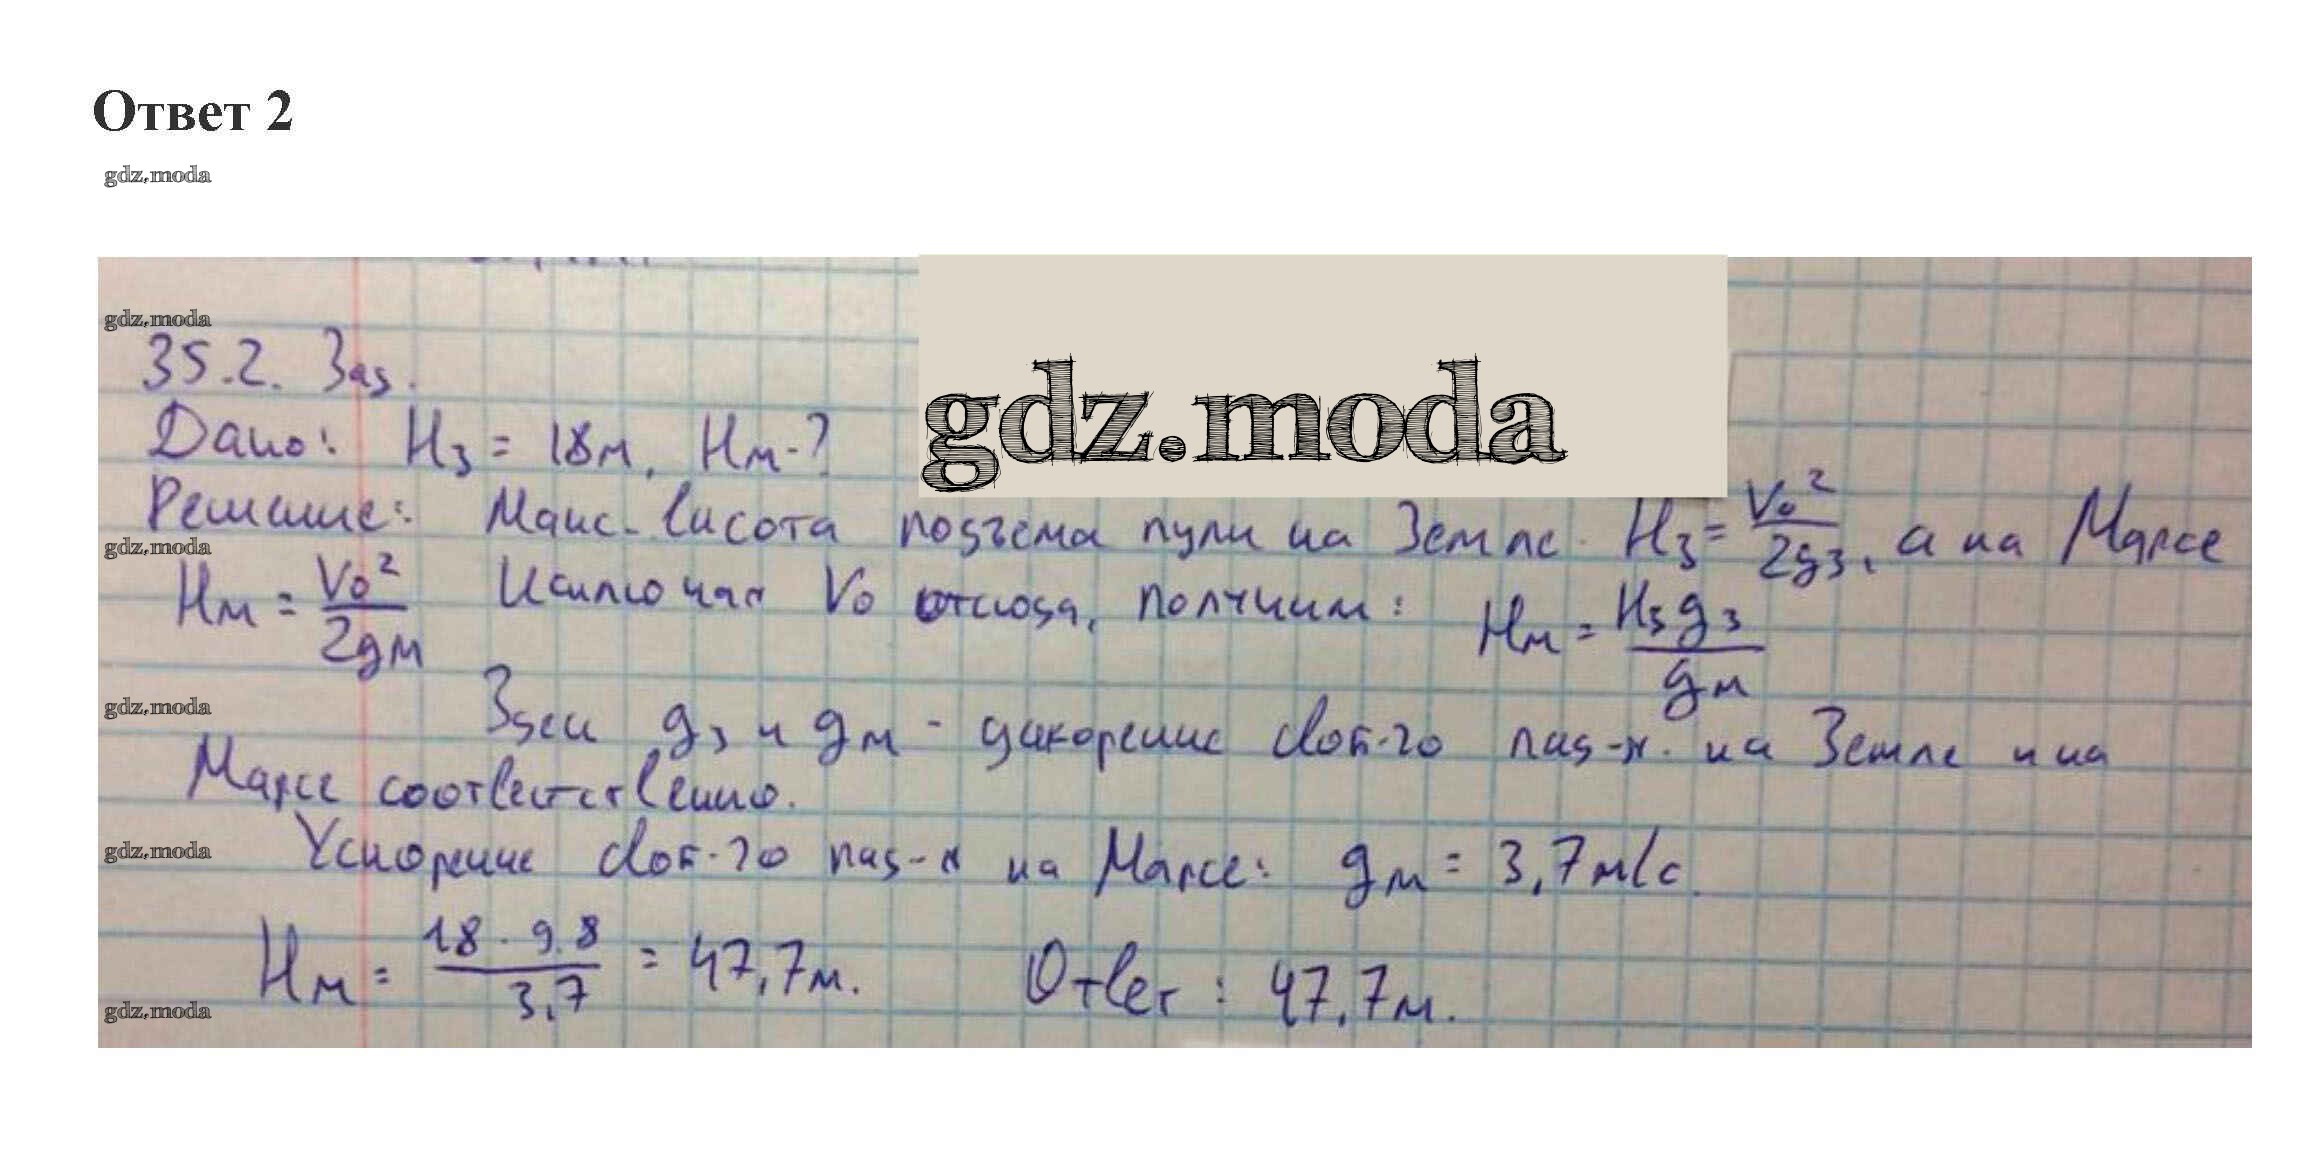 Ответ 2
gdz.moda
gdz.moda
gdz.moda
35.2. Зад.
Дано: Hз = 18м, Hм-?
Решение: Макс. высота подъема пули на Земле. Hз = V₀²/2gз, а на Марсе
gdz.moda
Hм = V₀²/2gм Исключая V₀ отсюда, получим: Hм = Hзgз/gм
Здесь gз и gм - ускорение своб-го пад-я. на Земле и на
gdz.moda
Марсе соответственно.
Ускорение своб-го пад-я на Марсе: gм = 3,7м/с.
gdz.moda
Hм = 18·9.8/3,7 = 47,7м. Ответ: 47,7м.
gdz.moda